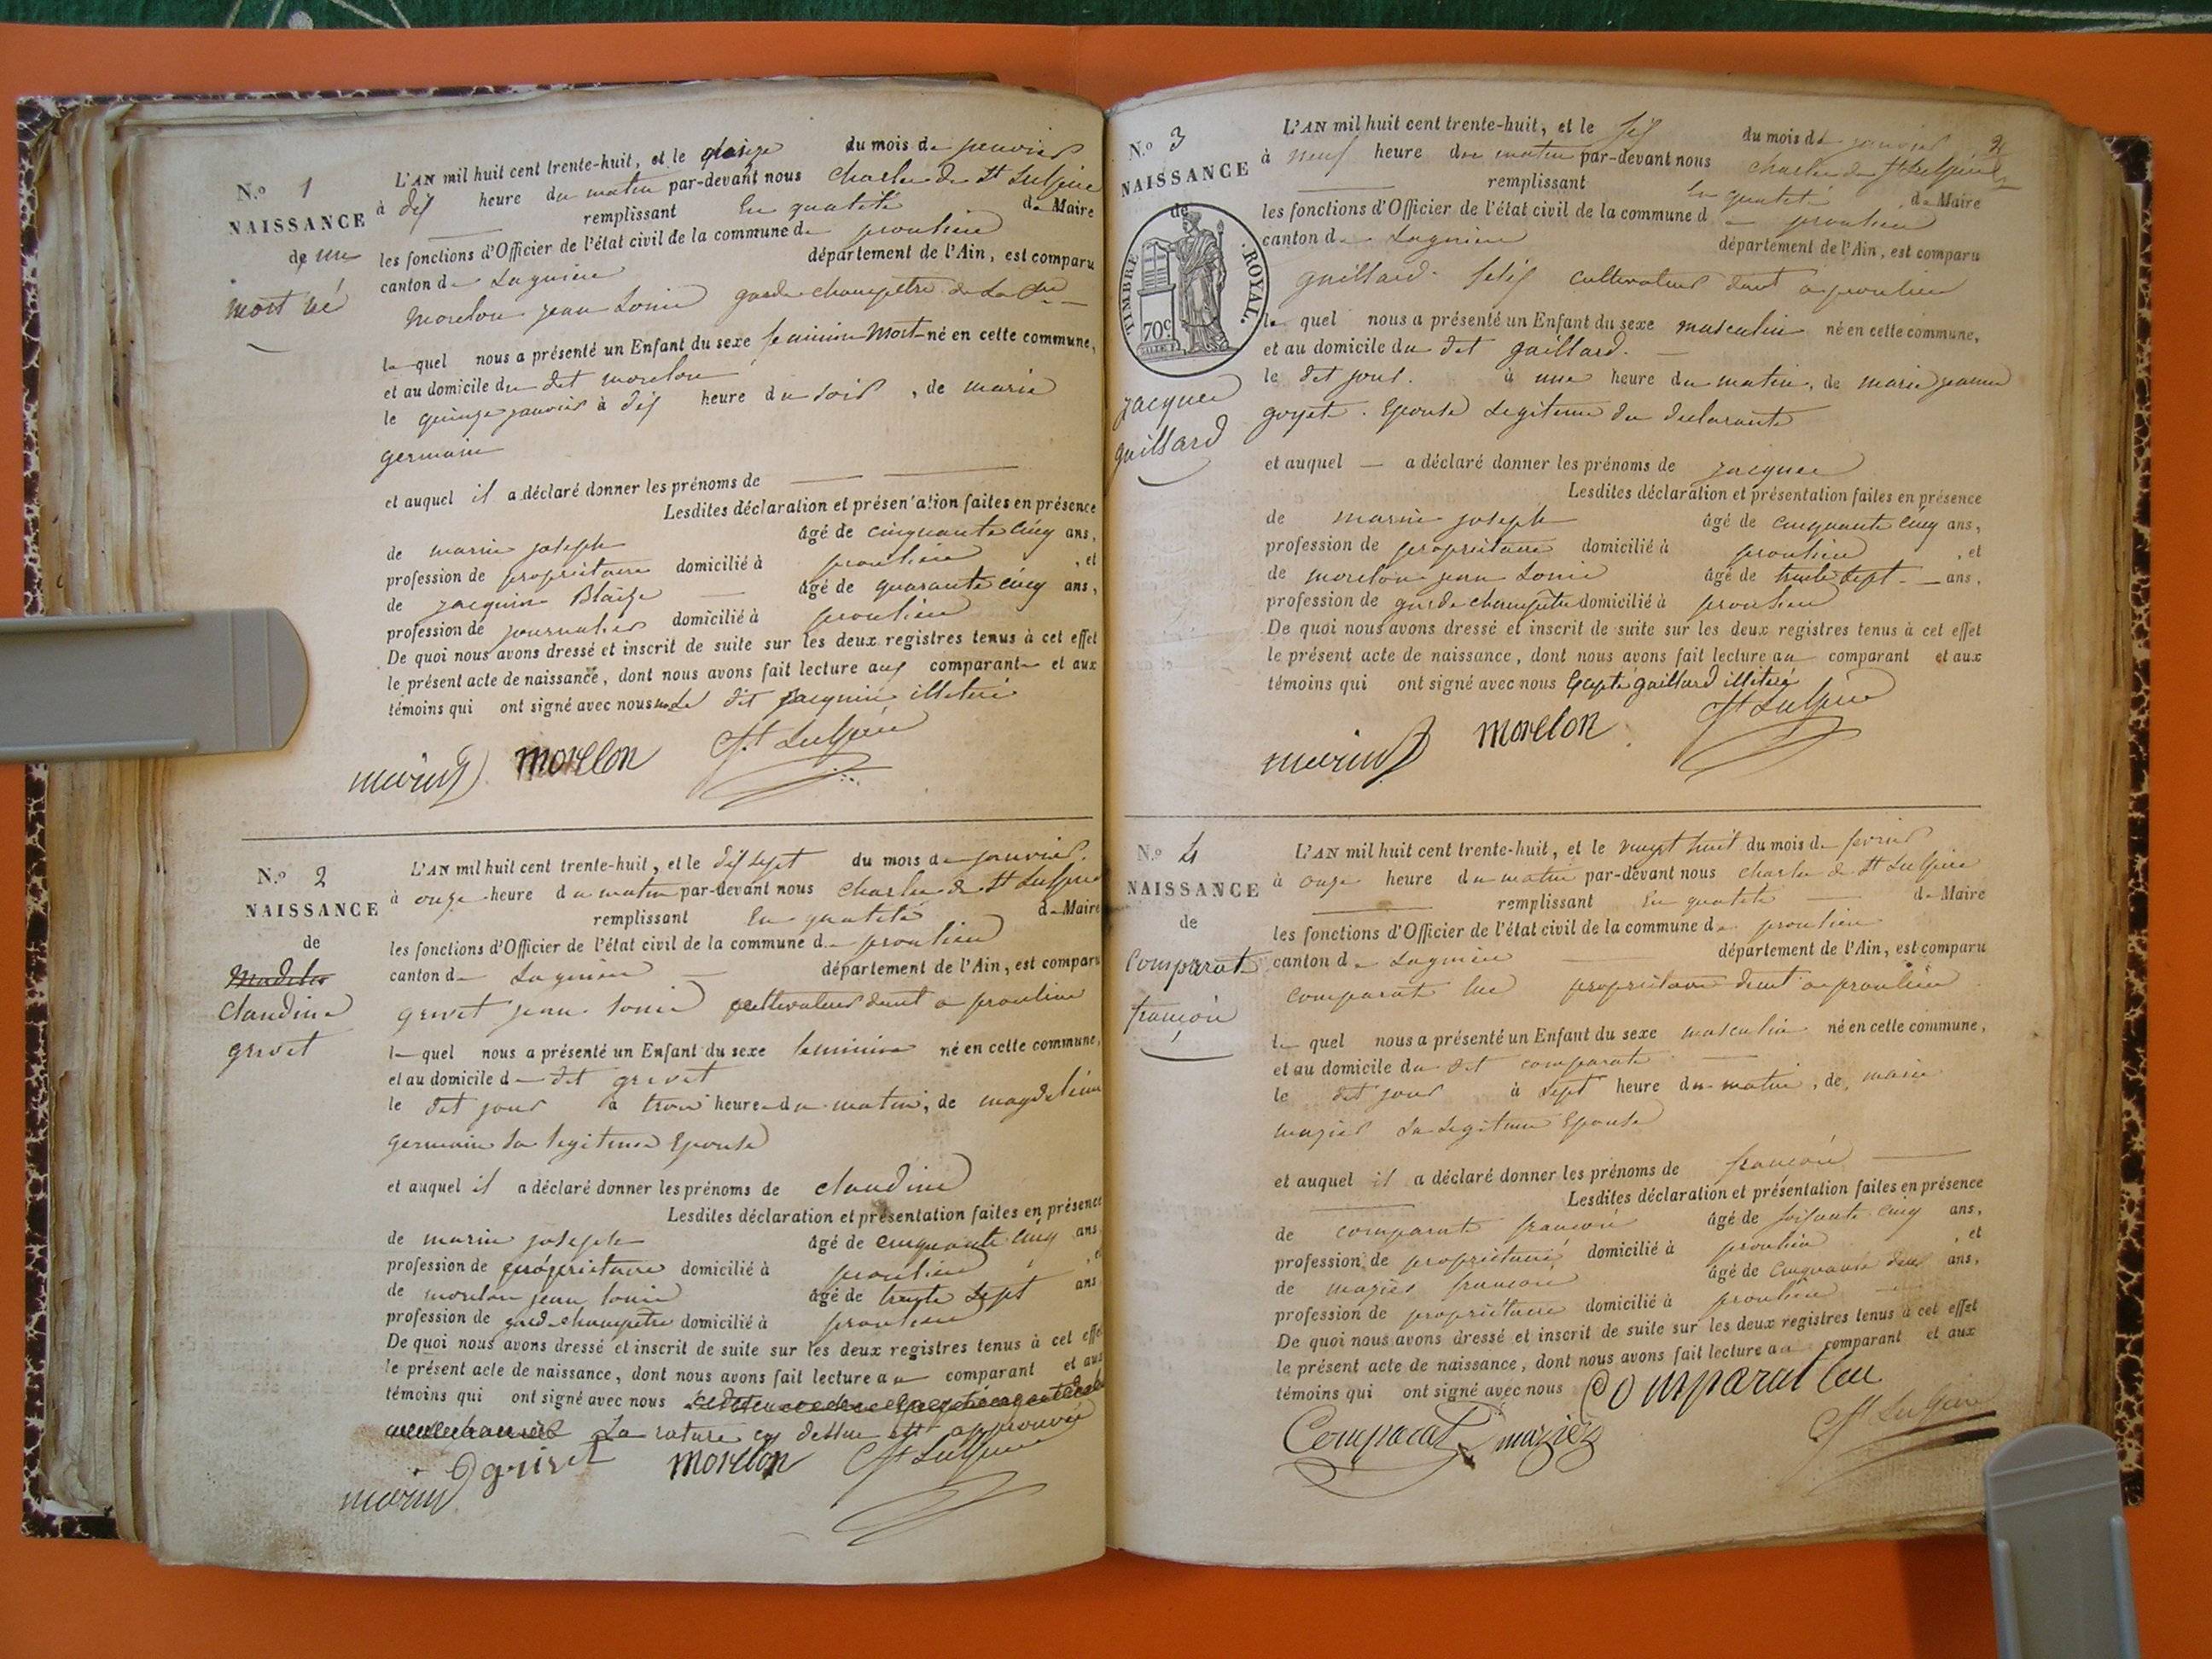 N.º 1
NAISSANCE
de un
mort né
L'AN mil huit cent trente-huit, et le du mois de janvier
à dix heure du matin par-devant nous Charles de St Sulpice
remplissant En qualité de Maire
les fonctions d'Officier de l'état civil de la commune de proulieu
canton de Lagnieu département de l'Ain, est comparu
morelon jean Louis garde champetre de La
le quel nous a présenté un Enfant du sexe feminin Mort-né en cette commune,
et au domicile du dit morelon
le quinze janvier à dix heure du soir, de marie
germain
et auquel il a déclaré donner les prénoms de
Lesdites déclaration et présentation faites en présence
de marin joseph âgé de cinquante cinq ans,
profession de propriétaire domicilié à proulieu, et
de jacquin Blaize âgé de quarante cinq ans,
profession de journalier domicilié à proulieu
De quoi nous avons dressé et inscrit de suite sur les deux registres tenus à cet effet
le présent acte de naissance, dont nous avons fait lecture aux comparant et aux
témoins qui ont signé avec nous dit jacquin illiteré
marin morellon St Sulpice
N.º 2
NAISSANCE
de
Claudine
grivet
L'AN mil huit cent trente-huit, et le dix sept du mois de janvier.
à onze heure du matin par-devant nous Charles de St Sulpice
remplissant En qualité de Maire
les fonctions d'Officier de l'état civil de la commune de proulieu
canton de Lagnieu département de l'Ain, est comparu
grivet jean Louis cultivateur dmt a proulieu
le quel nous a présenté un Enfant du sexe feminin né en cette commune,
et au domicile de dit grivet
le dit jour à trois heure du matin, de magdeleine
germain sa legitime Epouse
et auquel il a déclaré donner les prénoms de claudine
Lesdites déclaration et présentation faites en présence
de marin joseph âgé de cinquante cinq ans
profession de propriétaire domicilié à proulieu, et
de morelon jean louis âgé de trente sept ans
profession de garde champetre domicilié à proulieu
De quoi nous avons dressé et inscrit de suite sur les deux registres tenus à cet effet
le présent acte de naissance, dont nous avons fait lecture au comparant et aux
témoins qui ont signé avec nous
La rature cy dessus est approuvée
grivet morellon St Sulpice
marin
N.º 3
NAISSANCE
de
TIMBRE ROYAL.
70c
jacques
guillard
L'AN mil huit cent trente-huit, et le du mois de janvier
à neuf heure du matin par-devant nous Charles de St Sulpice
remplissant En qualité de Maire
les fonctions d'Officier de l'état civil de la commune de proulieu
canton de Lagnieu département de l'Ain, est comparu
guillard cultivateur dmt a proulieu
le quel nous a présenté un Enfant du sexe masculin né en cette commune,
et au domicile du dit guillard.
le dit jour. à une heure du matin, de marie jeanne
goyet. Epouse Legitime du declarante
et auquel a déclaré donner les prénoms de jacques
Lesdites déclaration et présentation faites en présence
de marin joseph âgé de cinquante cinq ans,
profession de propriétaire domicilié à proulieu, et
de morelon jean Louis âgé de trente sept ans,
profession de garde champetre domicilié à proulieu
De quoi nous avons dressé et inscrit de suite sur les deux registres tenus à cet effet
le présent acte de naissance, dont nous avons fait lecture au comparant et aux
témoins qui ont signé avec nous Excepté guillard illiteré
marin morellon St Sulpice
N.º 4
NAISSANCE
de
Comparat
françois
L'AN mil huit cent trente-huit, et le vingt huit du mois de fevrier
à onze heure du matin par-devant nous Charles de St Sulpice
remplissant En qualité de Maire
les fonctions d'Officier de l'état civil de la commune de proulieu
canton de Lagnieu département de l'Ain, est comparu
comparat luc propriétaire dmt a proulieu
le quel nous a présenté un Enfant du sexe masculin né en cette commune,
et au domicile du dit comparat
le dit jour à sept heure du matin, de marie
mazier sa Legitime Epouse
et auquel il a déclaré donner les prénoms de françois
Lesdites déclaration et présentation faites en présence
de comparat françois âgé de soixante cinq ans,
profession de propriétaire domicilié à proulieu, et
de mazier françois âgé de cinquante deux ans,
profession de propriétaire domicilié à proulieu
De quoi nous avons dressé et inscrit de suite sur les deux registres tenus à cet effet
le présent acte de naissance, dont nous avons fait lecture au comparant et aux
témoins qui ont signé avec nous Comparat luc
Comparat mazier St Sulpice